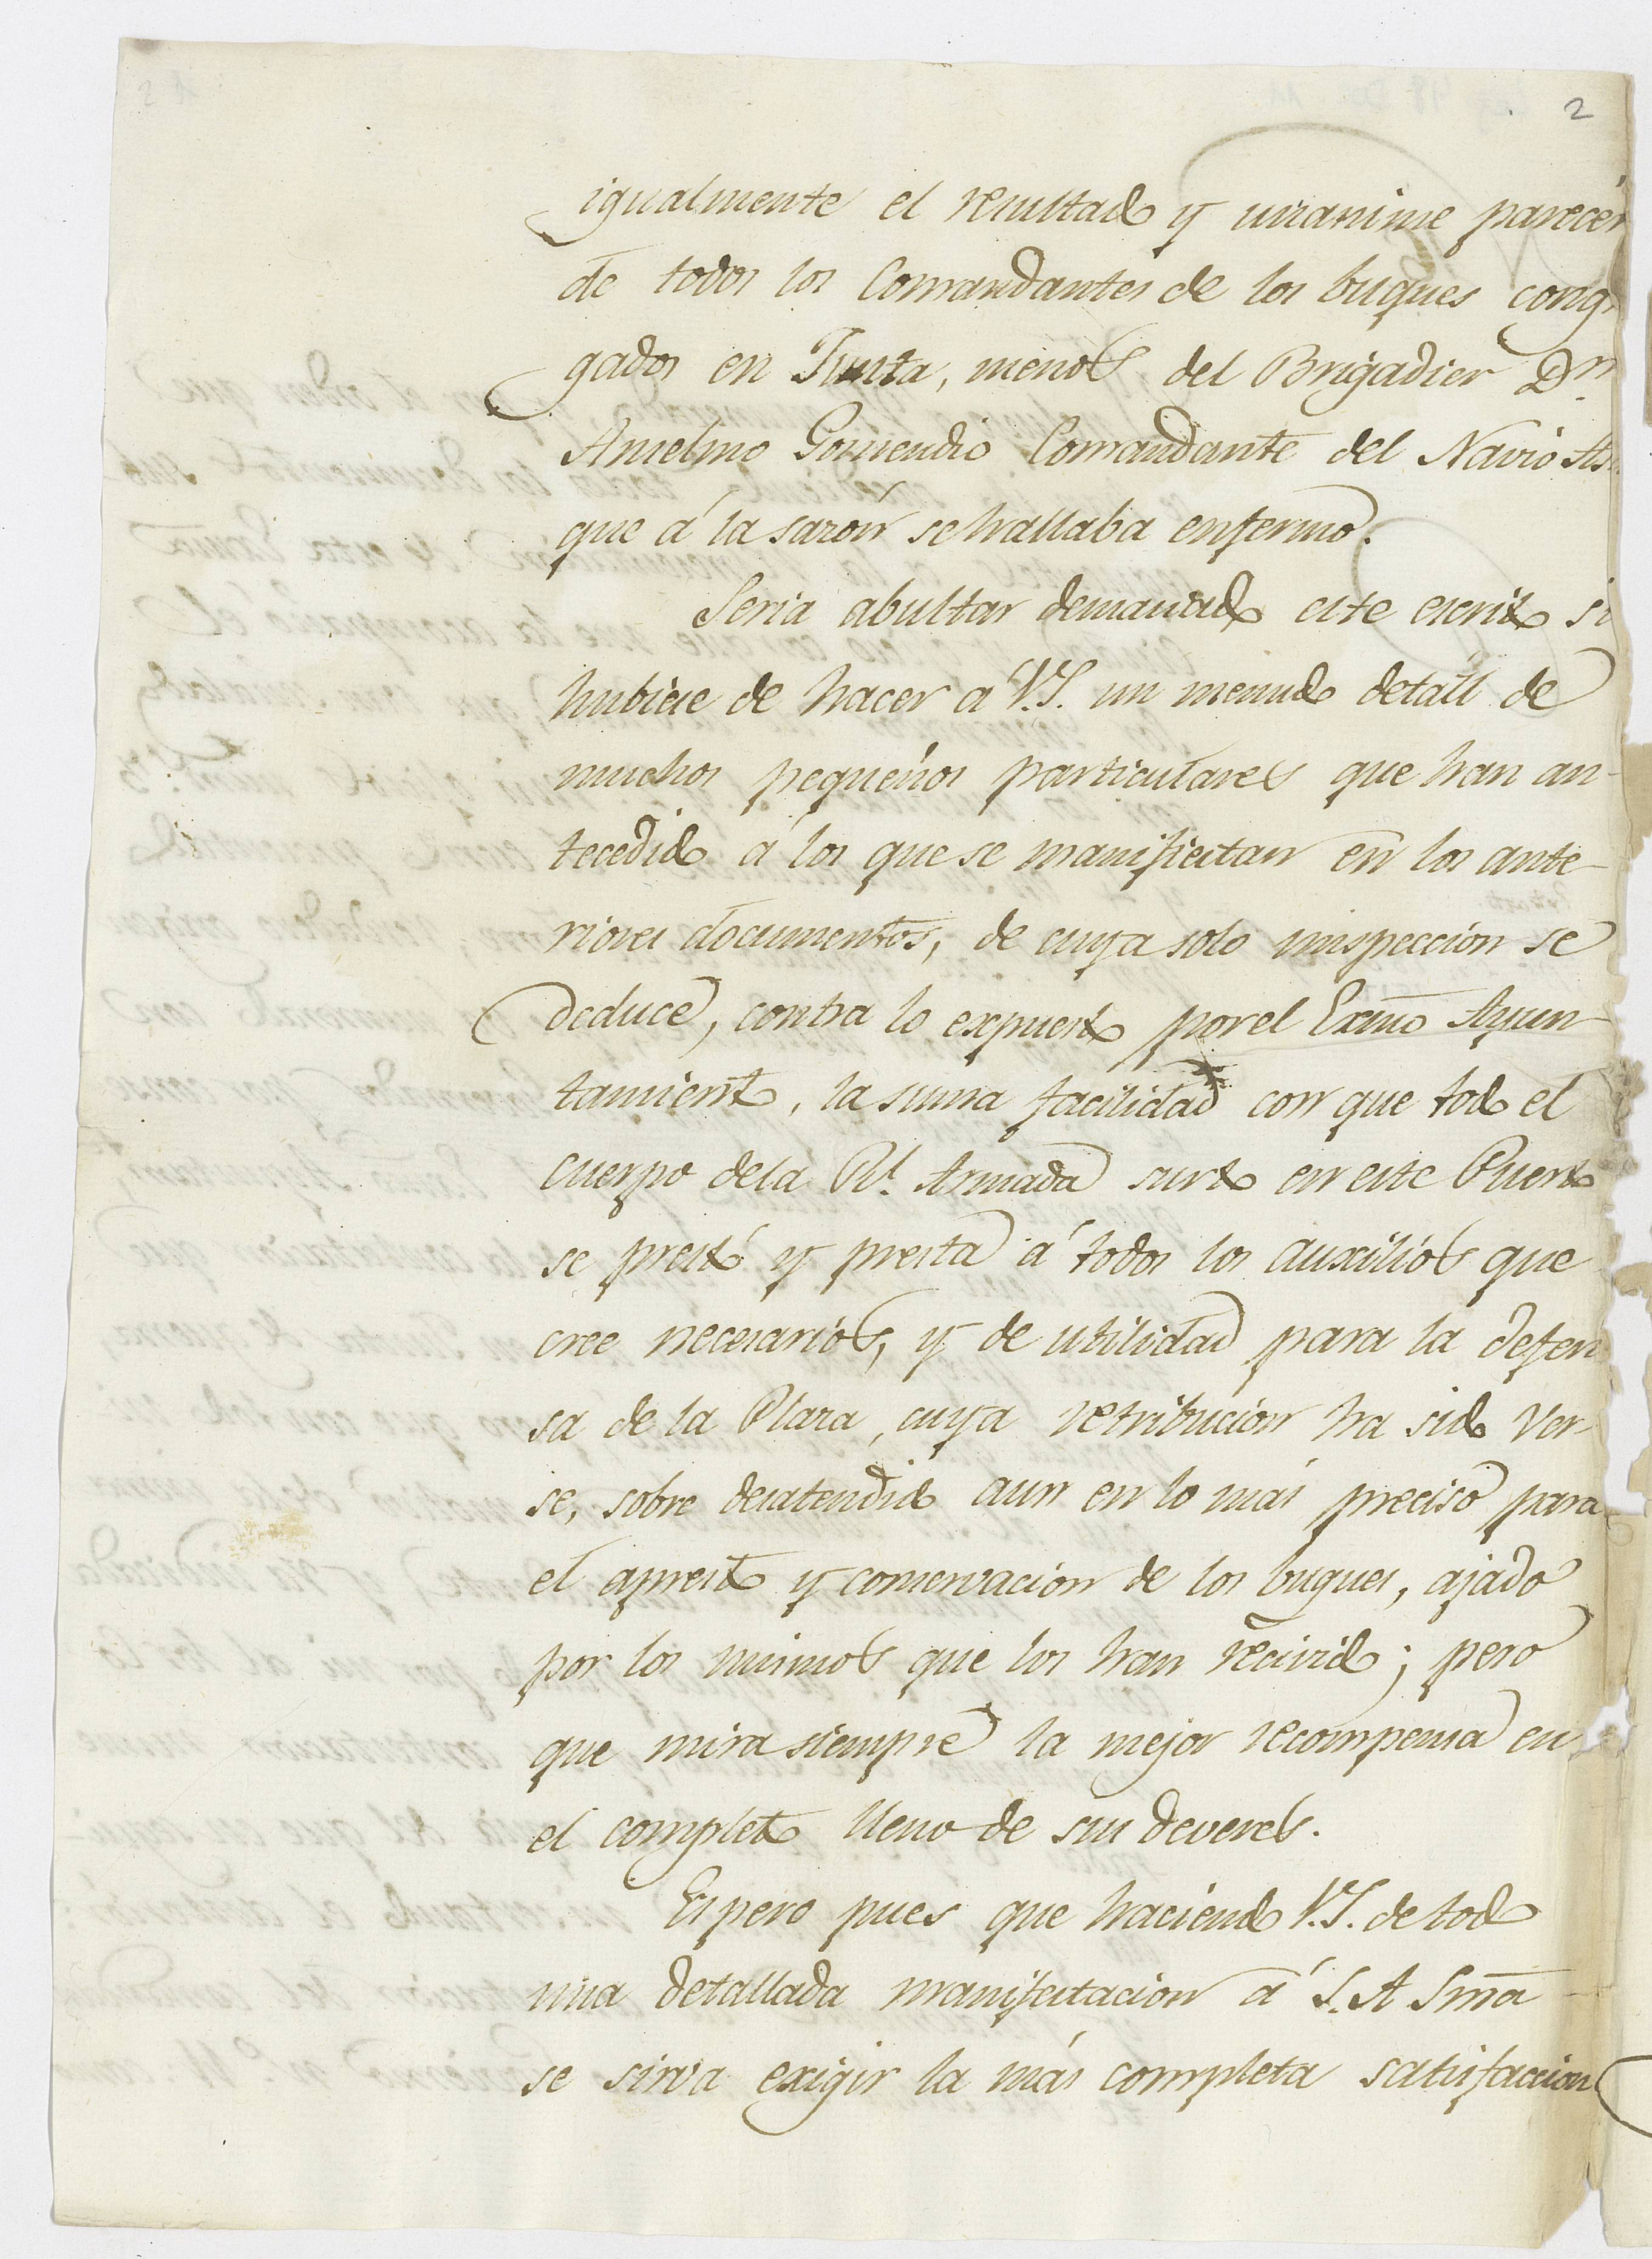 2
igualmente el resultado y unanime parecer
de todos los Comandantes de los buques cong
gados en Junta, menos del Brigadier Dn.
Anselmo Gomendio Comandante del Navio As
que á la sazón se hallaba enfermo.
Seria abultar demasiado este escrito si
hubiese de hacer a V.S. un menudo detáll de
muchos pequeños particulares que han an-
tecedido á los que se manifiestan en los ante-
riores documentos, de cuya solo inspeccion se
deduce, contra lo expuesto por el Exmo Ayun-
tamiento, la suma facilidad con que todo el
cuerpo de la Rl. Armada surto en este Puerto
se prestó y presta á todos los auxilios que
cree necesarios, y de utilidad para la defen
sa de la Plaza, cuya retribucion ha sido ver-
se, sobre desatendido aun en lo más preciso para
el apresto y conservacion de los buques, ajado
por los mismos que los han recivido; pero
que mira siempre la mejor recompensa en
el completo lleno de sus deveres.
Espero pues que haciendo V.S. de todo
una detallada manifestacion á S. A Sma
se sirva exigir la más completa satisfaccion